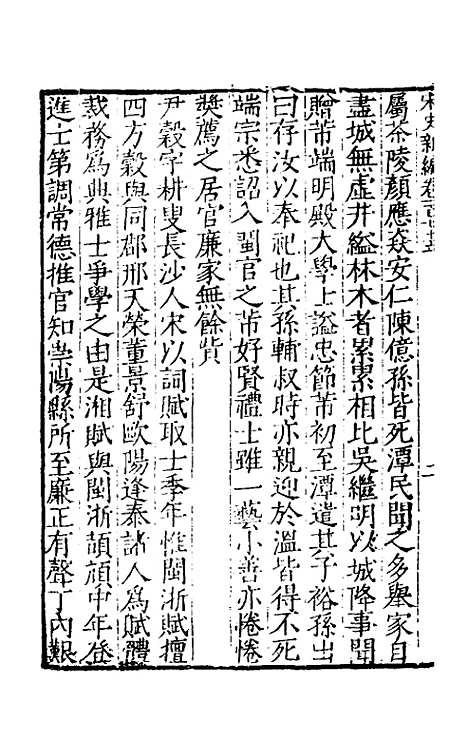 宋史新編卷一百七十五
二
屬茶陵顏應焱安仁陳億孫皆死潭民聞之多舉家自
盡城無虛井縊林木者累累相比吳繼明以城降事聞
贈芾端明殿大學士謚忠節芾初至潭遣其子裕孫出
曰存汝以奉祀也其孫輔叔時亦親迎於溫皆得不死
端宗悉詔入閩官之芾好賢禮士雖一藝小善亦惓惓
奬薦之居官廉家無餘貲
尹穀字耕叟長沙人宋以詞賦取士季年惟閩浙賦擅
四方穀與同郡邢天榮董景舒歐陽逢泰諸人爲賦體
裁務爲典雅士爭學之由是湘賦與閩浙頡頏中年登
進士第調常德推官知崇陽縣所至廉正有聲丁內艱